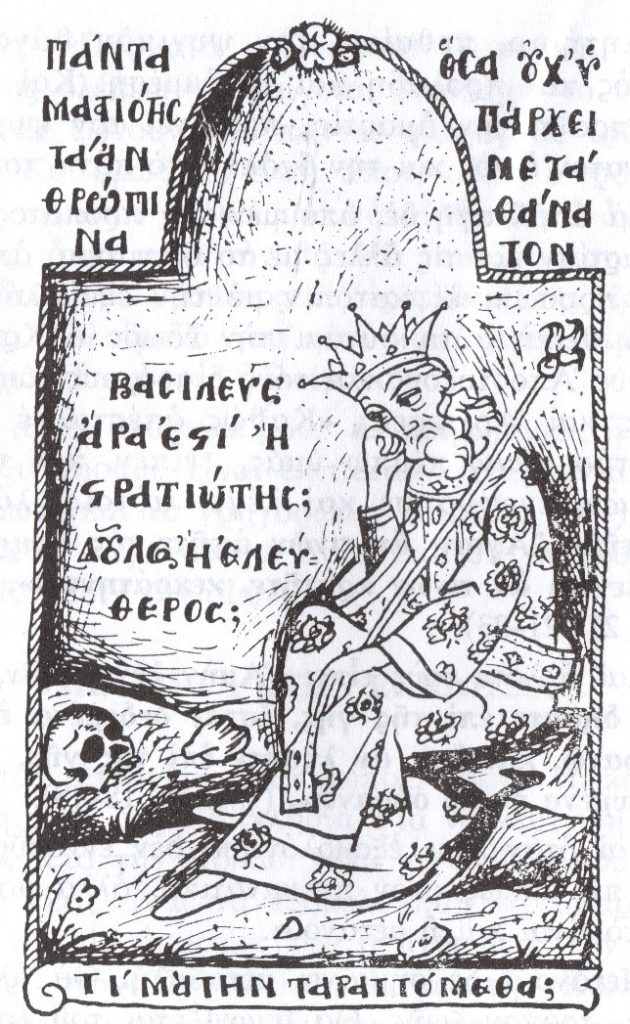 ΠΆΝΤΑ
ΜΑΤΙΟΤΗΣ
ΤΑ ἈΝ
ΘΡΏΠΙ
ΝΑ
ὍΣΑ ȢΧ Ὑ
ΠΆΡΧΕΙ
ΜΕΤΑ
ΘΆΝΑ
ΤΟΝ
ΒΑΣΙΛΕΥΣ
ἈΡΑ ΕϚΙ Ἢ
ϚΡΑΤΙΏΤΗΣ;
ΔȢΛΟΣ Η ΕΛΕΥ-
ΘΕΡΟΣ;
ΤΊ ΜΆΤΗΝ ΤΑΡΑΤΤΌΜΕΘΑ;